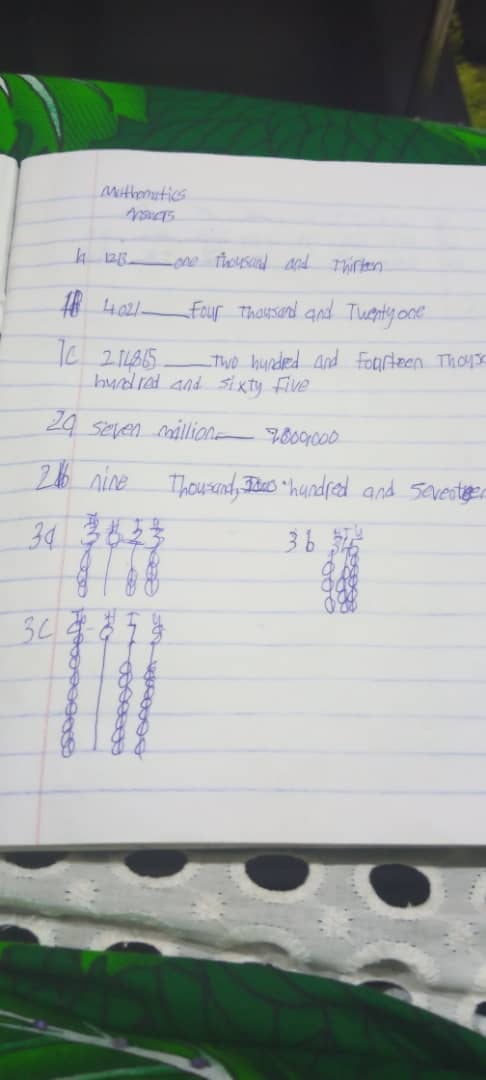 Mathematics
Answers
one Thousand and Thirteen
4021 Four Thousand and Twenty one
1c 214865 two hundred and fourteen Thous
hundred and sixty five
2a seven million
2b nine Thousand, hundred and seventeen
3a Th H T U
3 0 2 3
3b H T U
3c Th H T U